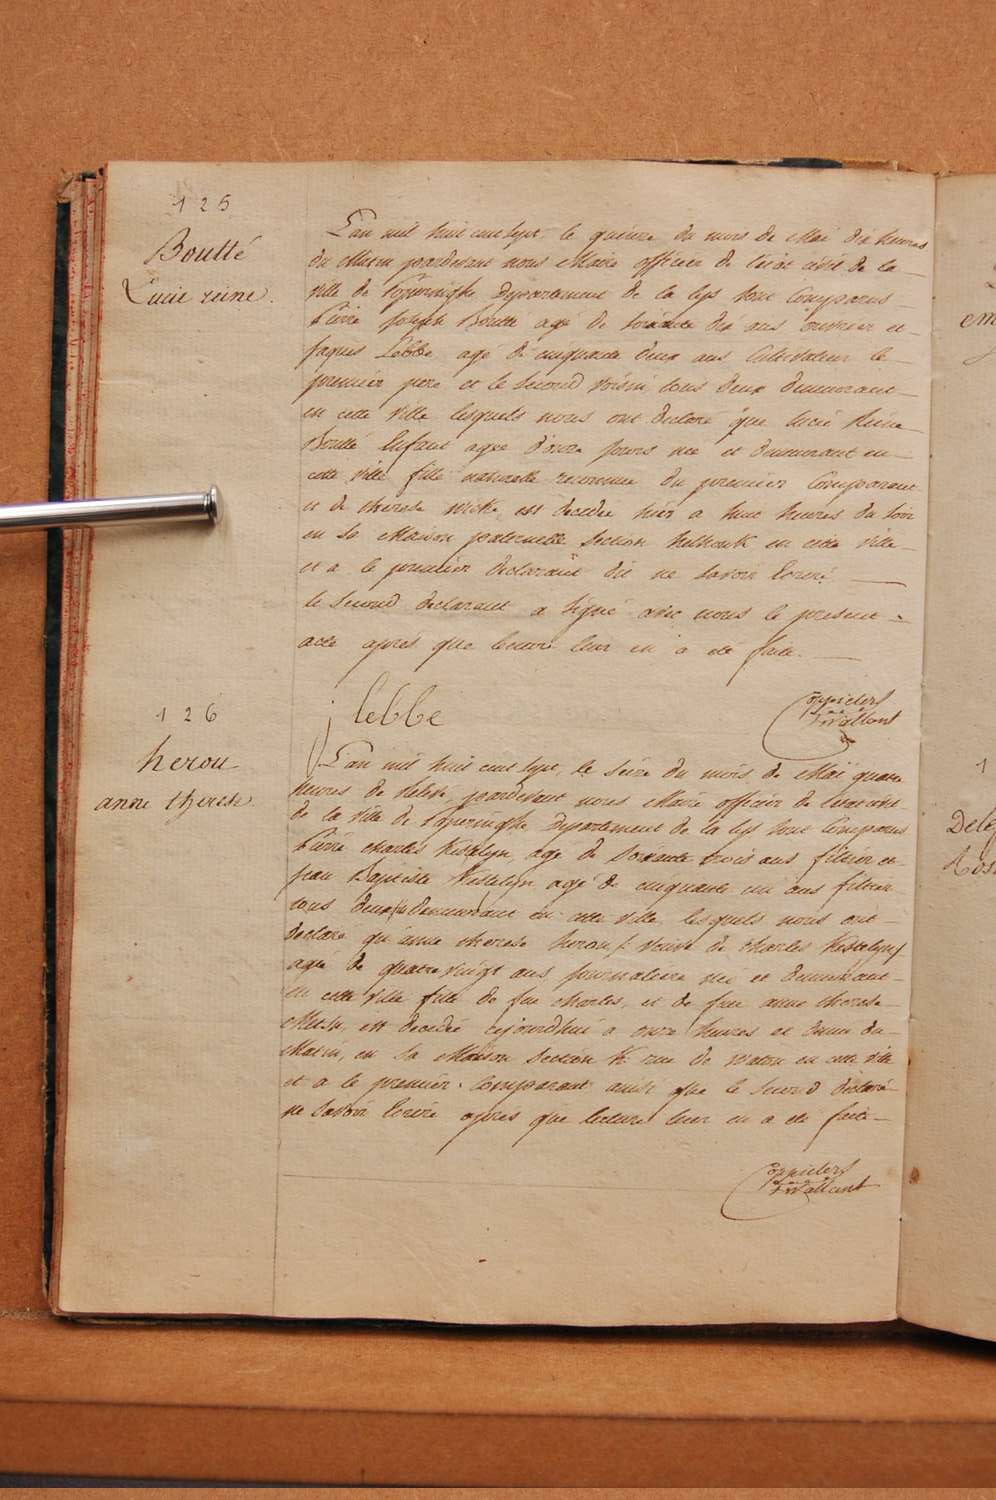 125
Boutté
Lucie reine.
L'an mil huit cent sept le quinze du mois de Mai dix heures
du Matin pardevant nous Maire officier de l'état civil de la
ville de Poperinghe Departement de la Lys sont Comparus
Pierre Joseph Boutté agé de soixante dix ans ouvrier et
Jaques Lebbe agé de cinquante deux ans Cultivateur le
premier pere et le second voisin tous deux demeurant
en cette ville lesquels nous ont declaré que lucie Reine
Boutté Enfant agée d'onze jours née et demeurant en
cette ville fille naturelle reconnue du premier Comparant
et de therese est decedée hier a huit heures du soir
en sa Maison paternelle section en cette ville
et a le premier declarant dit ne savoir Ecrire
le second declarant a signé avec nous le present
acte apres que lecture leur en a ete faite.
j lebbe
126
herou
anne therese
L'an mil huit cent sept, le seize du mois de Mai quatre
heures de relevé, pardevant nous Maire officier de l'etat civil
de la ville de Poperinghe Departement de la Lys sont Comparus
Pierre charles Kestelyn, agé de soixante trois ans filtier et
jean Baptiste Kestelyn agé de cinquante un ans filtier
tous deux demeurant en cette ville lesquels nous ont
declaré qu'anne therese herou, veuve de charles Kestelyn
agée de quatre vingt ans journaliere née et demeurant
en cette ville fille de feu charles, et de feue anne therese
est decedée cejourdhui a onze heures et demie du
Matin, en sa Maison section K rue de watou en cette ville
et a le premier Comparant ainsi que le second declaré
ne savoir Ecrire apres que lecture leur en a ete faite